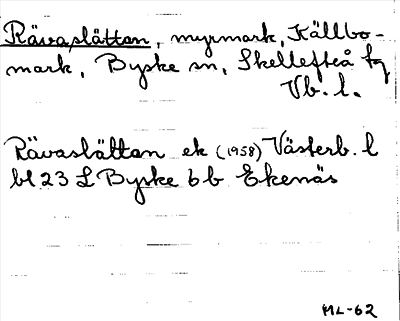 Rävaslåttan, myrmark, Källbo-
mark, Byske sn, Skellefteå tg
Vb. l.
Rävaslåttan ek (1958) Västerb. l
bl 23 L Byske 6 b Ekenäs
ML-62